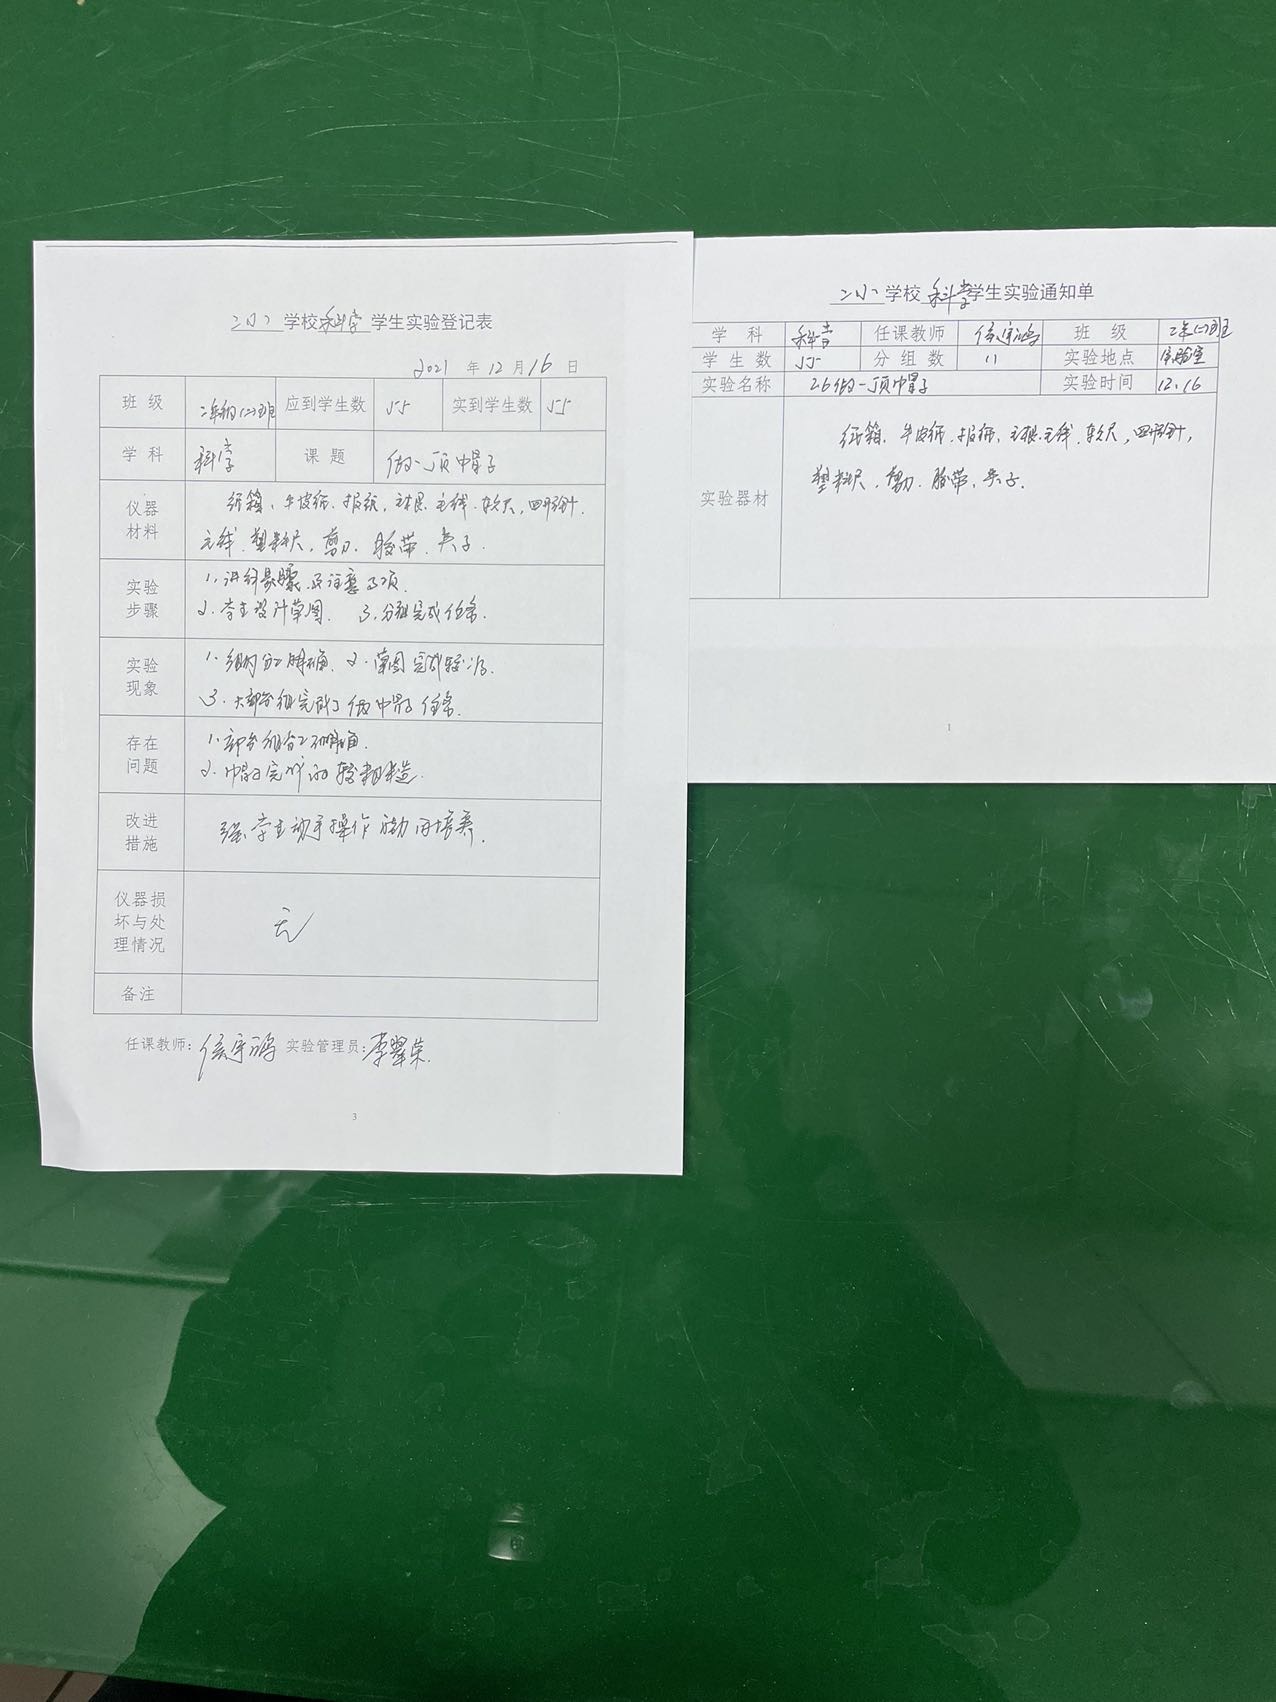 二小 学校 科学 学生实验登记表
2021 年 12 月 16 日
班 级 二年级(二)班 应到学生数 55 实到学生数 55
学 科 科学 课 题 做一顶帽子
仪器材料 纸箱、牛皮纸、报纸、毛线、软尺,回形针
毛线、塑料尺,剪刀、胶带、夹子.
实验步骤 1、讲解 步骤及注意事项.
2、学生设计草图. 3、分组完成任务.
实验现象 1、组内分工明确. 2、草图完成较好.
3、大部分组完成了做帽子任务.
存在问题 1、部分组分工不明确.
2、帽子完成的较粗糙.
改进措施 学生动手操作能力的培养.
仪器损坏与处理情况 无
备注
任课教师: 实验管理员:李翠荣.
3
二小 学校 科学 学生实验通知单
学 科 科学 任课教师 班 级 二年(二)班
学 生 数 55 分 组 数 11 实验地点 实验室
实验名称 26做一顶帽子 实验时间 12.16
实验器材 纸箱、牛皮纸、报纸、毛线、软尺,回形针,
塑料尺、剪刀、胶带、夹子.
1